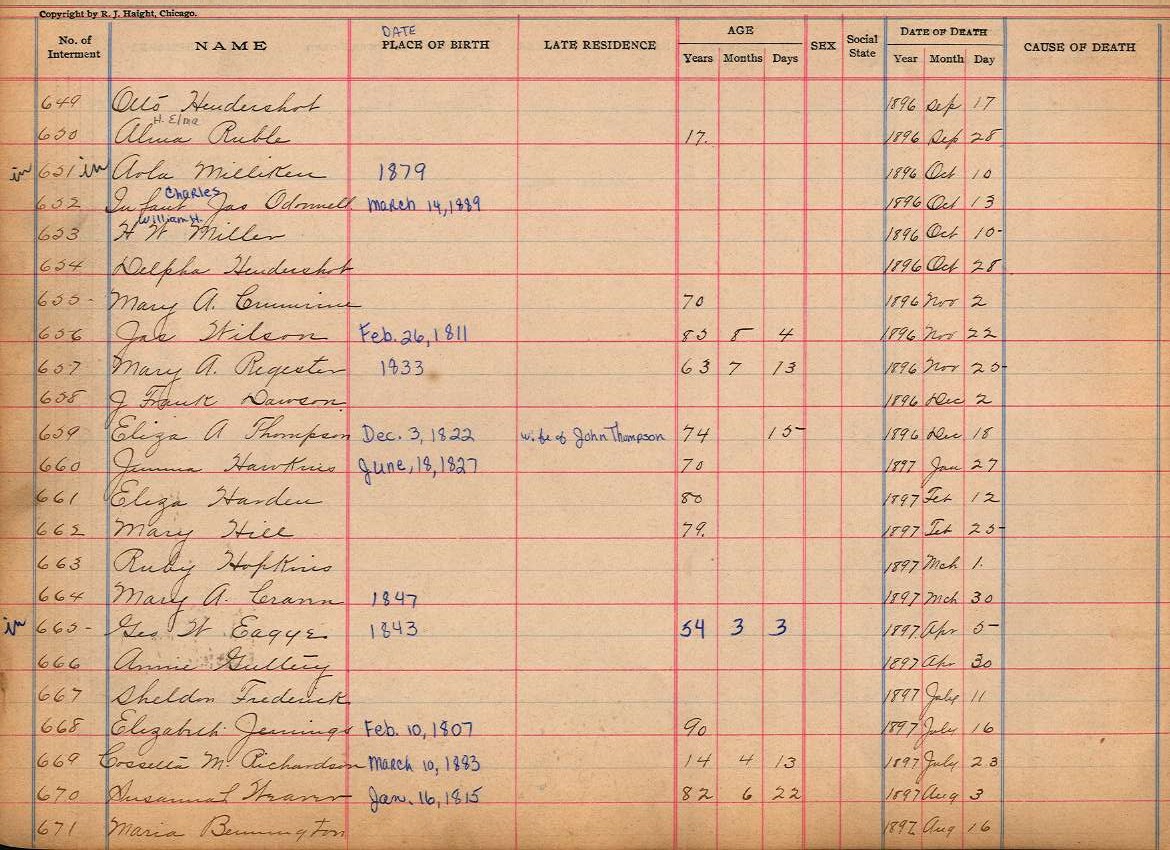 Copyright by R. J. Haight, Chicago.
No. of Interment NAME DATE PLACE OF BIRTH LATE RESIDENCE AGE Years Months Days SEX Social State DATE OF DEATH Year Month Day CAUSE OF DEATH
649 Otto Hendershot 1896 Sep 17
H. Elma
650 Alma Ruble 17. 1896 Sep 28
in 651 in Arla Milliken 1879 1896 Oct 10
Charles
652 Infant Jas Odonnell March 14, 1889 1896 Oct 13
William H.
653 H W Miller 1896 Oct 10
654 Delpha Hendershot 1896 Oct 28
655 Mary A. Crumrine 70 1896 Nov 2
656 Jas Wilson Feb. 26, 1811 85 8 4 1896 Nov 22
657 Mary A. Regester 1833 63 7 13 1896 Nov 25
658 J Frank Dawson 1896 Dec 2
659 Eliza A Thompson Dec. 3, 1822 wife of John Thompson 74 15 1896 Dec 18
660 Jemima Hawkins June, 18, 1827 70 1897 Jan 27
661 Eliza Harden 80 1897 Feb 12
662 Mary Hill 79. 1897 Feb 25
663 Ruby Hopkins 1897 Mch 1.
664 Mary A. Crann 1847 1897 Mch 30
in 665 Geo W Eagye 1843 54 3 3 1897 Apr 5
666 Annie 1897 Apr 30
667 Sheldon Frederick 1897 July 11
668 Elizabeth Jennings Feb. 10, 1807 90 1897 July 16
669 Cossetta M. Richardson March 10, 1883 14 4 13 1897 July 23
670 Susannah Weaver Jan. 16, 1815 82 6 22 1897 Aug 3
671 Maria Bennington 1897 Aug 16